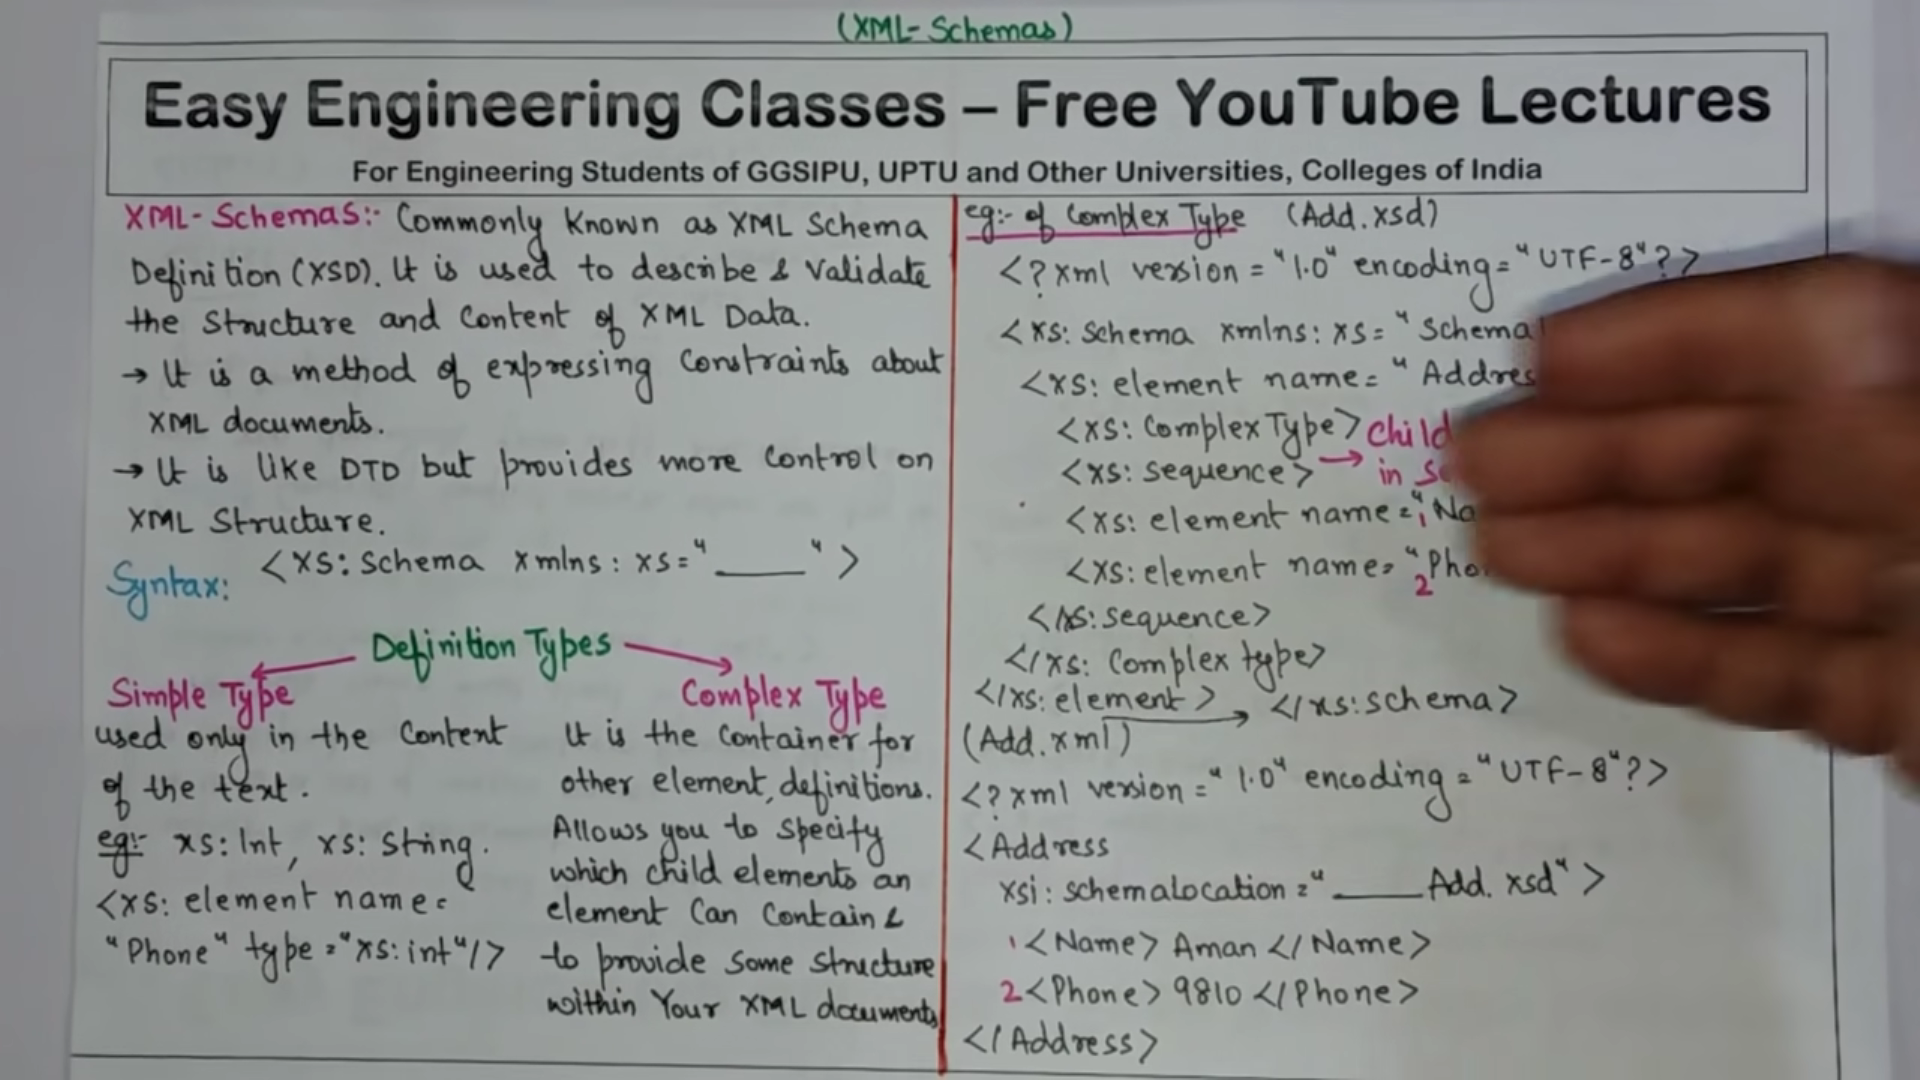 (XML-Schemas)
Easy Engineering Classes – Free YouTube Lectures
For Engineering Students of GGSIPU, UPTU and Other Universities, Colleges of India
XML-Schemas:- Commonly Known as XML Schema
Definition (XSD). It is used to describe & Validate
the Structure and Content of XML Data.
→ It is a method of expressing Constraints about
XML documents.
→ It is like DTD but provides more Control on
XML Structure.
Syntax: <xs:schema xmlns:xs="____">
Definition Types
Simple Type
used only in the Content
of the text.
eg:- xs:Int, xs:String.
<xs:element name=
"Phone" type="xs:int"/>
Complex Type
It is the Container for
other element, definitions.
Allows you to Specify
which child elements an
element Can Contain &
to provide Some Structure
within Your XML documents
eg:- of Complex Type (Add.xsd)
<?xml version="1.0" encoding="UTF-8"?>
<xs:schema xmlns:xs="Schema
<xs:element name="
<xs:ComplexType> Child
<xs:sequence> → in
<xs:element name="1
<xs:element name="2
</xs:sequence>
</xs:Complex type>
</xs:element> → </xs:schema>
(Add.xml)
<?xml version="1.0" encoding="UTF-8"?>
<Address
xsi:schemalocation="____Add.xsd">
1 <Name> Aman </Name>
2 <Phone> 9810 </Phone>
</Address>